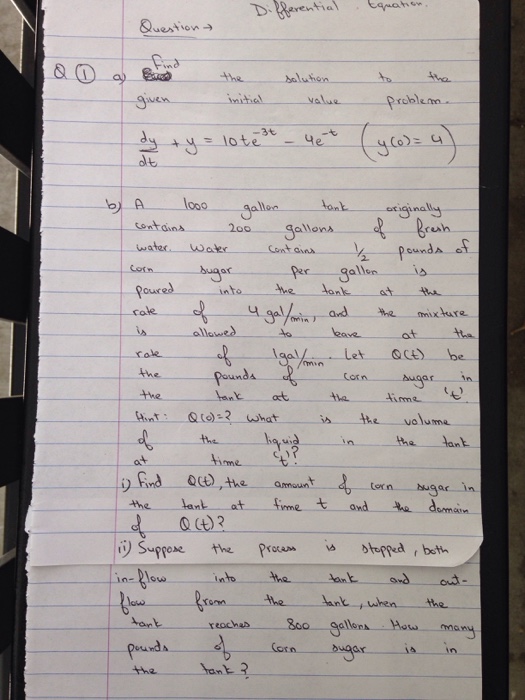 Differential Equation.
Question →
Q ① a) Find the solution to the
given initial value problem.
dy/dt + y = 10te^-3t - 4e^-t (y(0) = 4)
b) A 1000 gallon tank originally
contains 200 gallons of fresh
water. Water contains 1/2 pounds of
corn sugar per gallon is
poured into the tank at the
rate of 4 gal/min, and the mixture
is allowed to leave at the
rate of 1gal/min. Let Q(t) be
the pounds of corn sugar in
the tank at the time 't'.
Hint: Q(0)=? What is the volume
of the liquid in the tank
at time 't'?
i) Find Q(t), the amount of corn sugar in
the tank at time t and the domain
of Q(t)?
ii) Suppose the process is stopped, both
in-flow into the tank and out-
flow from the tank, when the
tank reaches 800 gallons. How many
pounds of corn sugar is in
the tank?